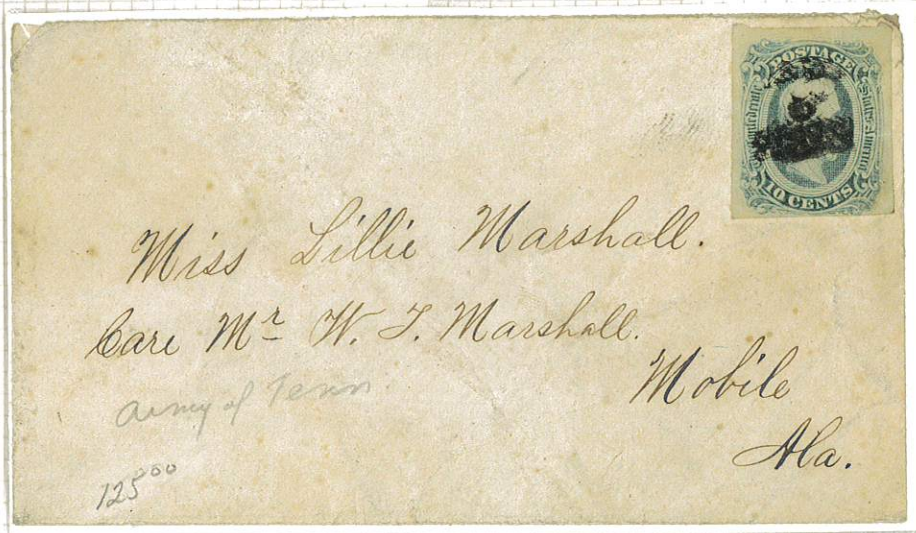 POSTAGE
Confederate States America
10 CENTS
Miss Lillie Marshall.
Care Mr W. T. Marshall.
Mobile
Ala.
Army of Tenn
125 00